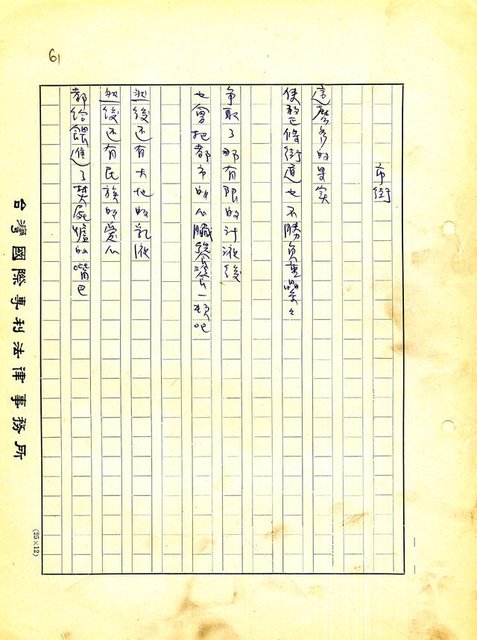 61
市街
這麼多的果實
使條街道也不勝負重
爭取了那有限的汁液後
也會把都市的心臟一頓吧
然後还有大地的乳液
然後还有民族的愛心
都給餵進了焚屍爐的嘴巴
台灣國際專利法律事務所
(25×12)